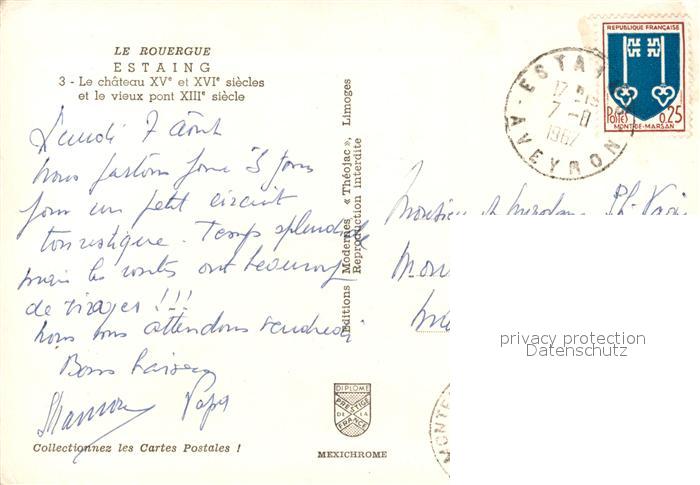 LE ROUERGUE
ESTAING
3 - Le château XVe et XVIe siècles
et le vieux pont XIIIe siècle
Lundi 7 Août
nous partons pour 3 jours
pour un petit circuit
touristique. Temps splendide
mais les routes ont beaucoup
de virages !!!
nous vous attendons vendredi
Bons baisers
Papa
Collectionnez les Cartes Postales !
Editions Modernes « Théojac », Limoges
Reproduction interdite
DIPLOME
PRESTIGE
DE LA
FRANCE
MEXICHROME
ESTAING
17 H
7 - 8
1967
AVEYRON
REPUBLIQUE FRANÇAISE
POSTES 0,25
MONT-DE-MARSAN
Monsieur et
privacy protection
Datenschutz